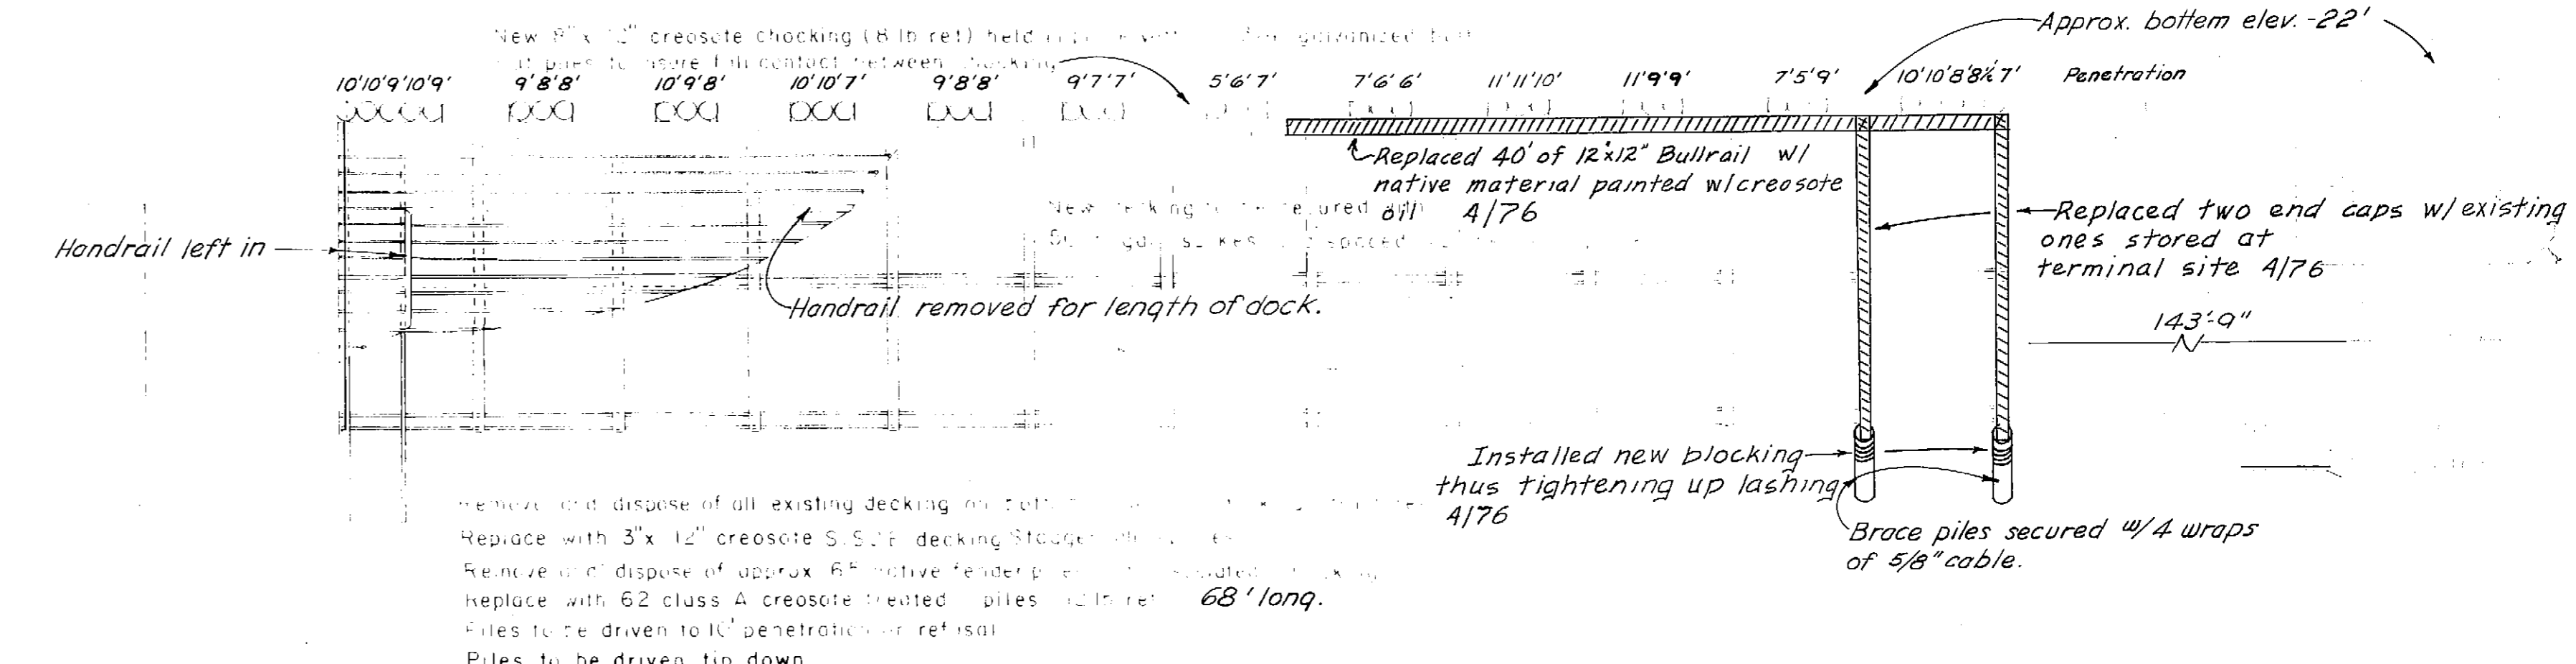 Approx. bottem elev. -22'
New 8" x 12" creosote chocking (8 lb ret) held galvanized bolt
piles to insure full contact between chocking
10' 10' 9' 10' 9' 9' 8' 8' 10' 9' 8' 10' 10' 7' 9' 8' 8' 9' 7' 7' 5' 6' 7' 7' 6' 6' 11' 11' 10' 11' 9' 9' 7' 5' 9' 10' 10' 8' 8½' 7' Penetration
Replaced 40' of 12"x12" Bullrail w/
native material painted w/creosote
oil 4/76
New decking to be secured with
spikes spaced
Replaced two end caps w/ existing
ones stored at
terminal site 4/76
Handrail left in
Handrail removed for length of dock.
143'-9"
Installed new blocking
thus tightening up lashing
4/76
Brace piles secured w/4 wraps
of 5/8" cable.
Remove and dispose of all existing decking on
Replace with 3" x 12" creosote decking
Remove and dispose of approx native fender
Replace with 62 class A creosote treated piles 68' long.
Piles to be driven to 10' penetration or refusal
Piles to be driven tip down